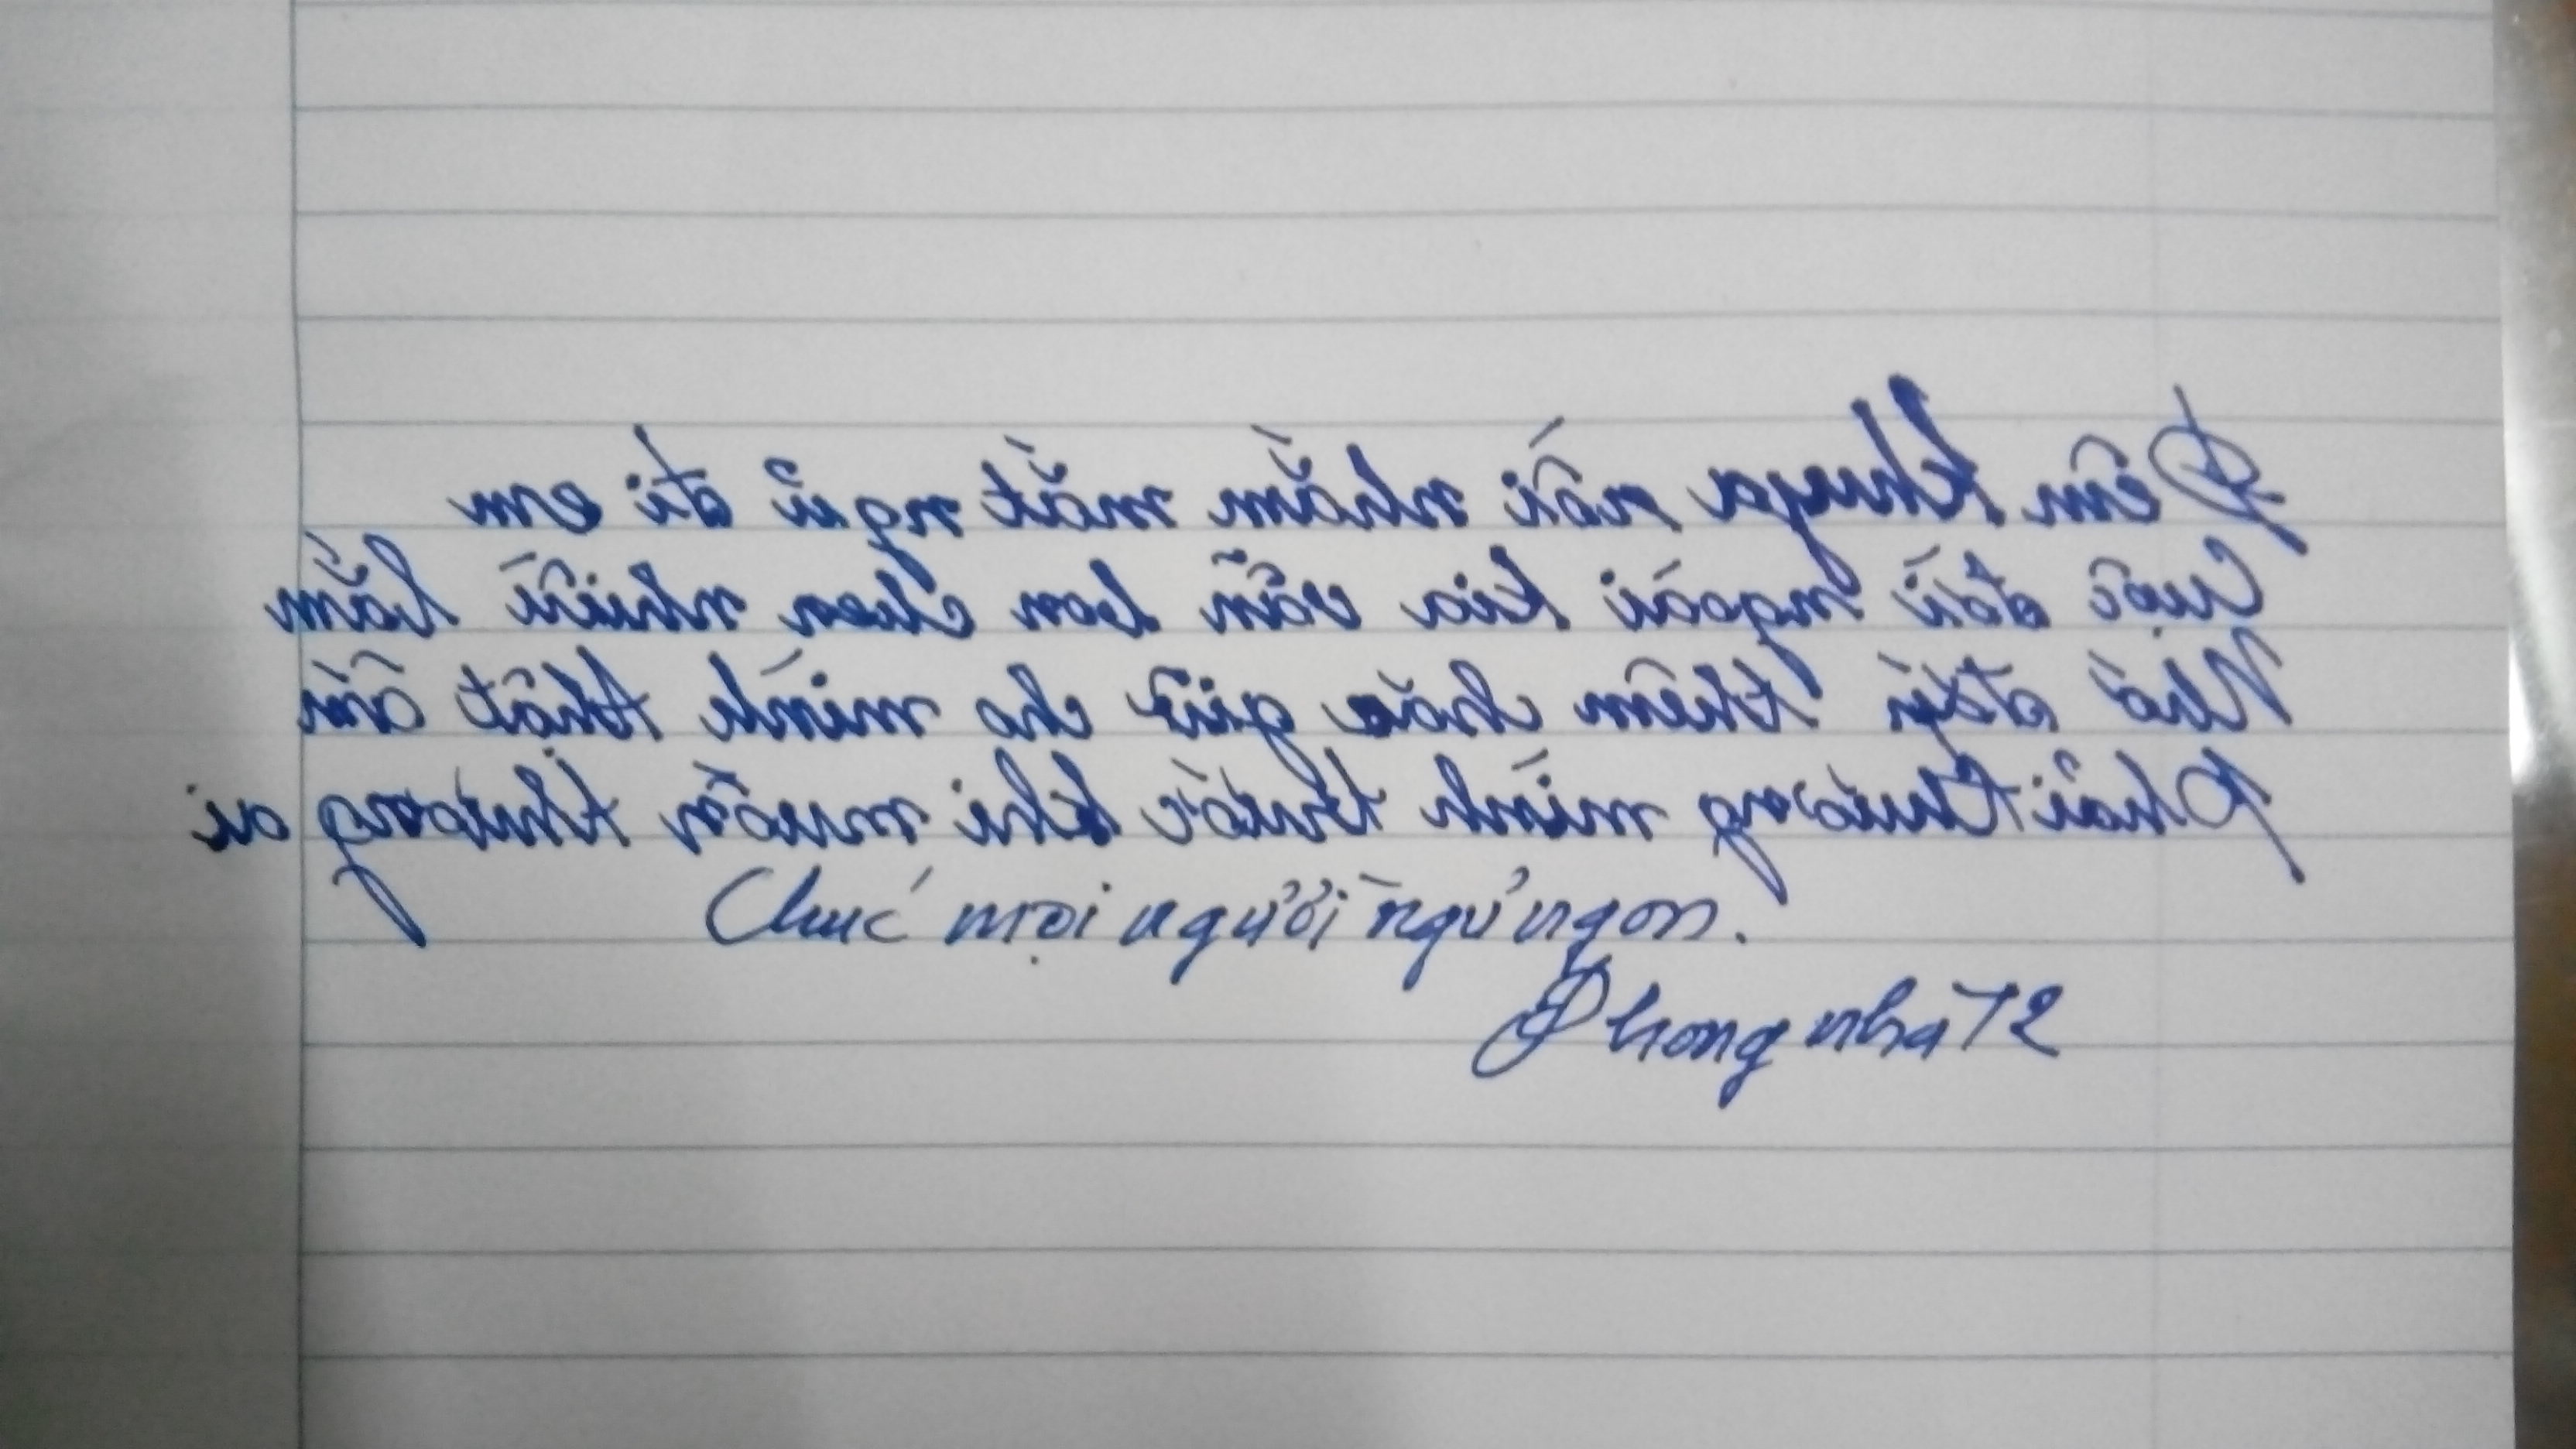 Đêm khuya rồi nhắm mắt ngủ đi em
Cuộc đời ngoài kia vẫn bon chen nhiều lắm
Nhớ đắp thêm chăn giữ cho mình thật ấm
Phải thương mình trước khi muốn thương ai
Chúc mọi người ngủ ngon.
Phong nha 72